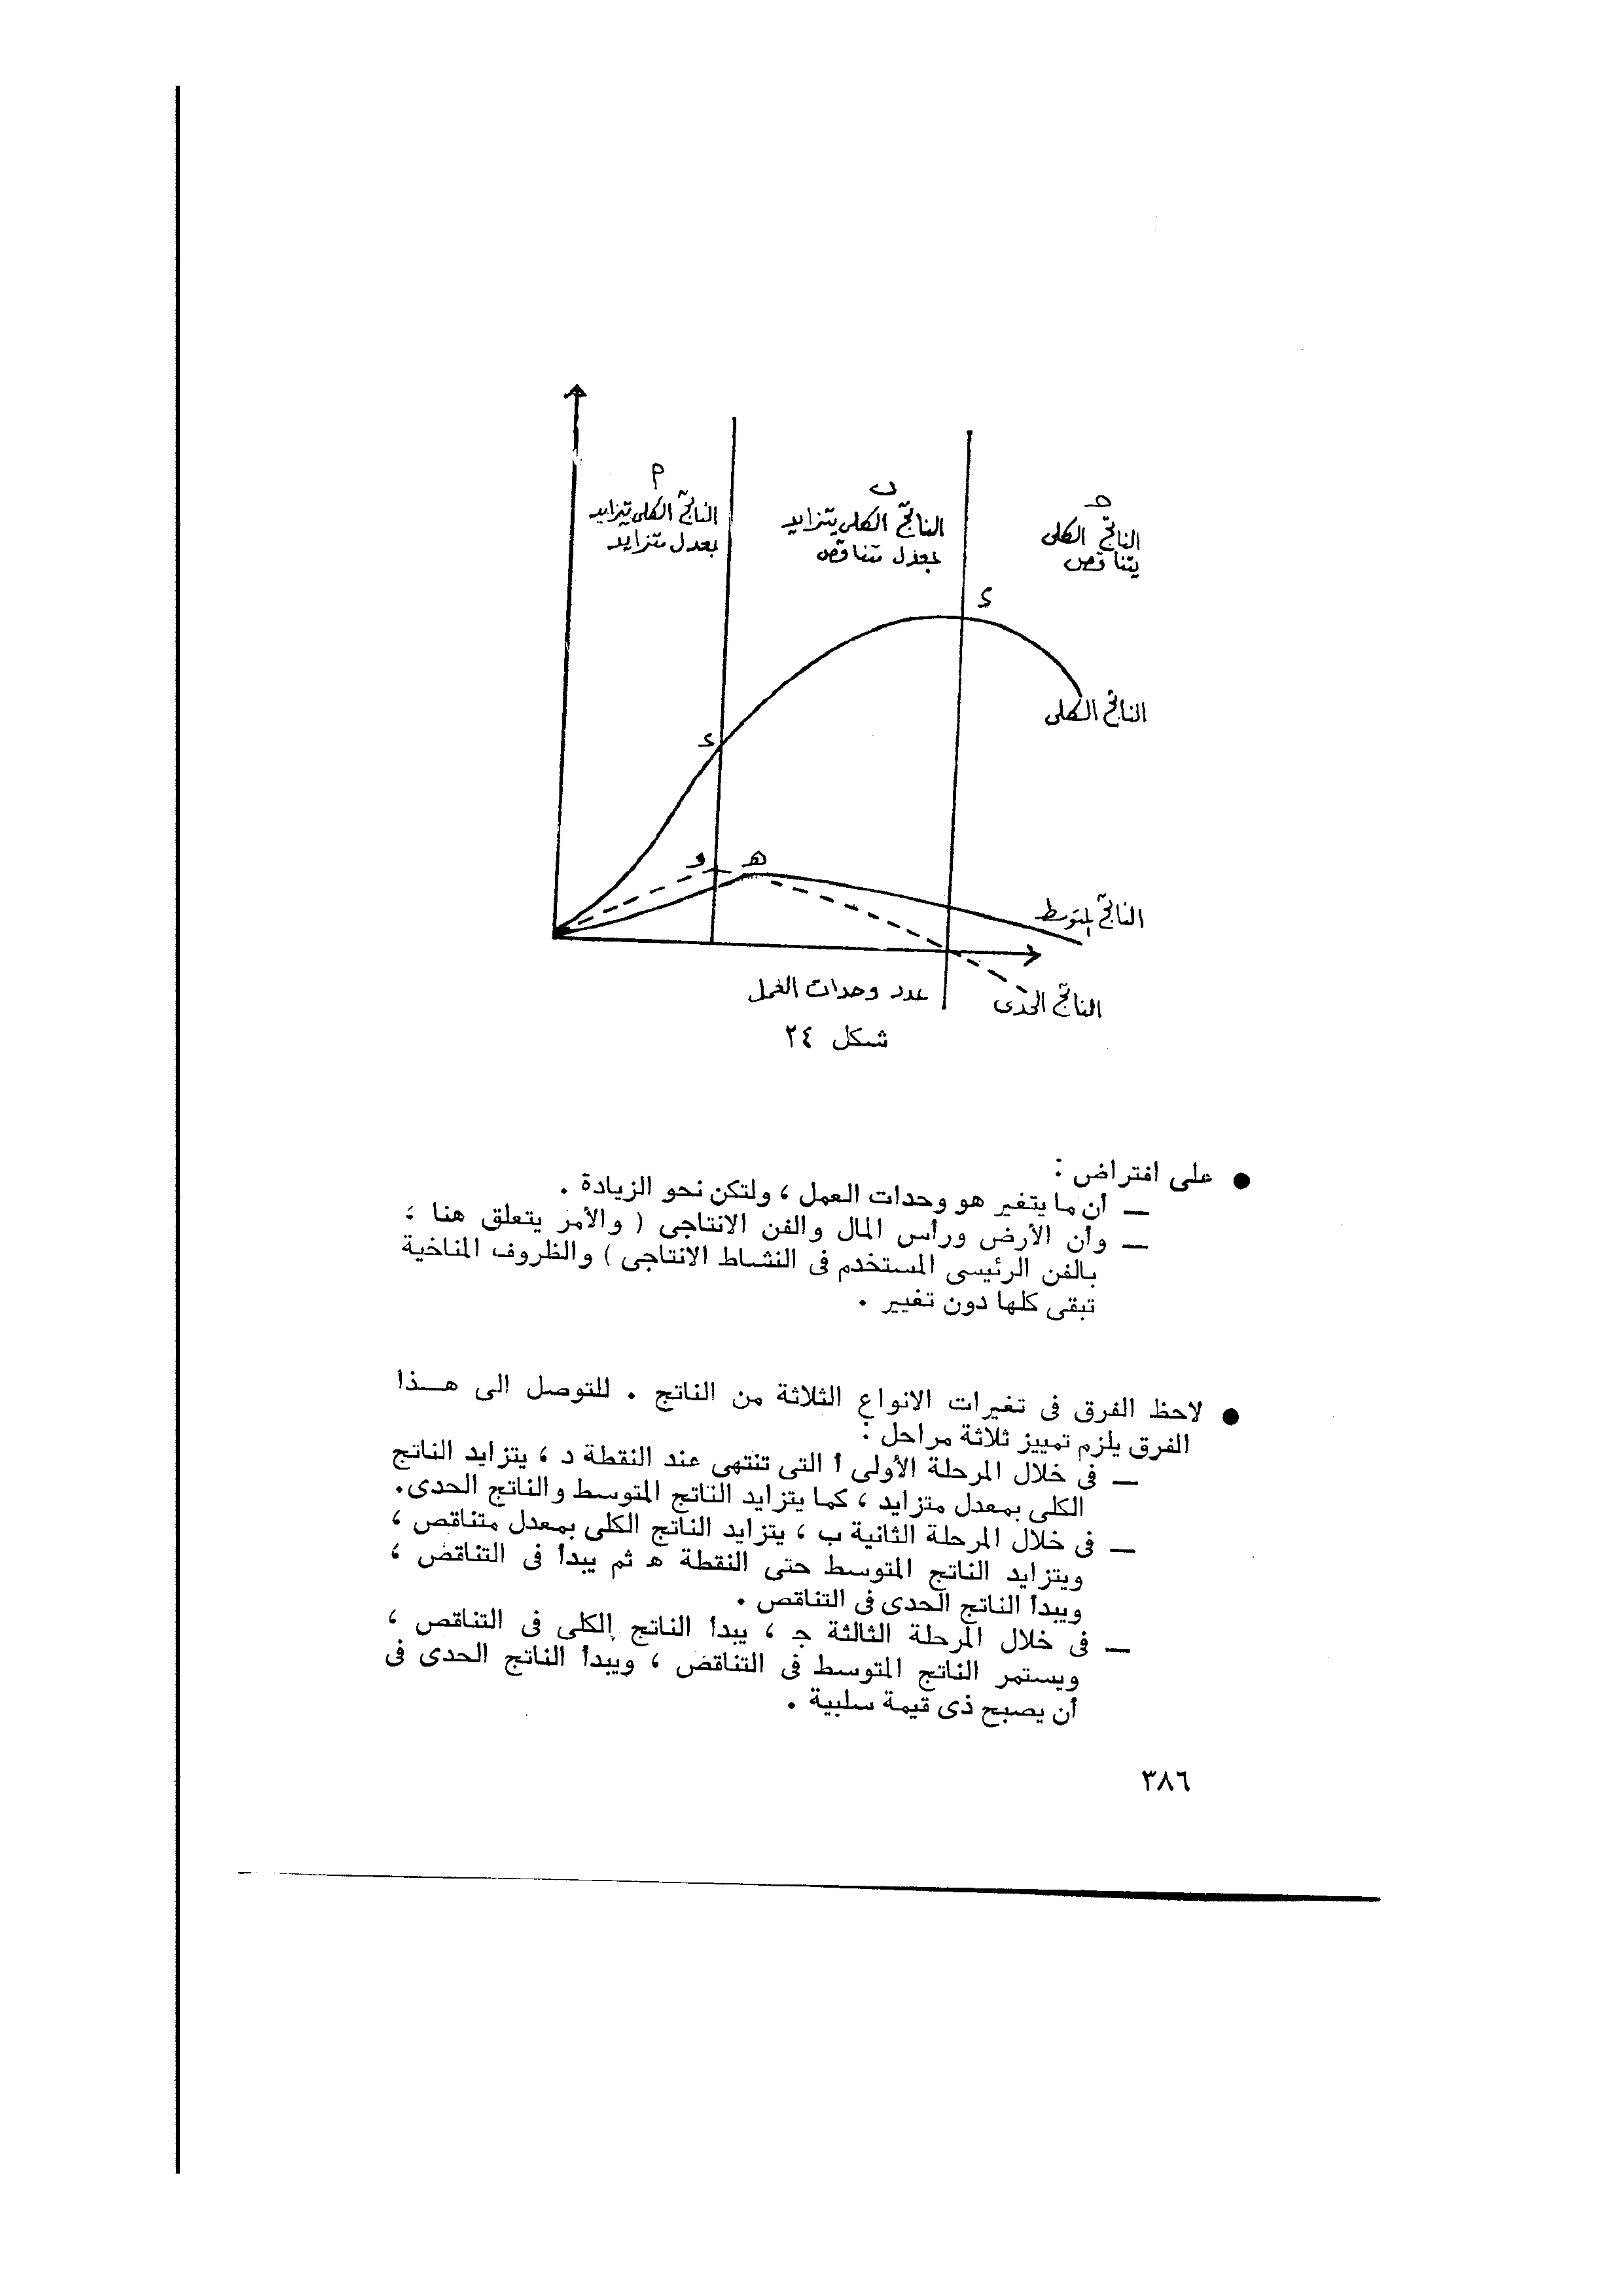 أ
الناتج الكلى يتزايد
بمعدل متزايد
ب
الناتج الكلى يتزايد
بمعدل متناقص
حـ
الناتج الكلى
يتناقص
د
د
الناتج الكلى
و
هـ
الناتج المتوسط
الناتج الحدى
عدد وحدات العمل
شكل ٢٤
● على افتراض :
— أن ما يتغير هو وحدات العمل ، ولتكن نحو الزيادة .
— وأن الأرض ورأس المال والفن الانتاجى ( والأمر يتعلق هنا ؛
بالفن الرئيسى المستخدم فى النشاط الانتاجى ) والظروف المناخية
تبقى كلها دون تغيير .
● لاحظ الفرق فى تغيرات الانواع الثلاثة من الناتج . للتوصل الى هــذا
الفرق يلزم تمييز ثلاثة مراحل :
— فى خلال المرحلة الأولى أ التى تنتهى عند النقطة د ، يتزايد الناتج
الكلى بمعدل متزايد ، كما يتزايد الناتج المتوسط والناتج الحدى.
— فى خلال المرحلة الثانية ب ، يتزايد الناتج الكلى بمعدل متناقص ،
ويتزايد الناتج المتوسط حتى النقطة هـ ثم يبدأ فى التناقص ،
ويبدأ الناتج الحدى فى التناقص .
— فى خلال المرحلة الثالثة جـ ، يبدأ الناتج الكلى فى التناقص ،
ويستمر الناتج المتوسط فى التناقص ، ويبدأ الناتج الحدى فى
أن يصبح ذى قيمة سلبية .
٣٨٦